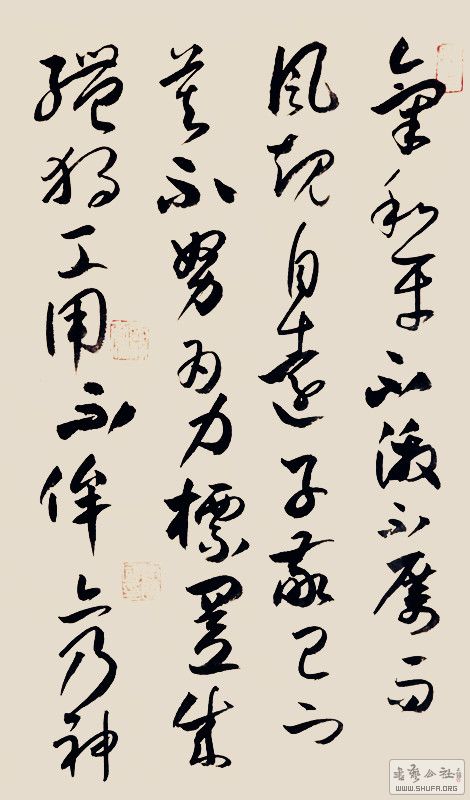 氣和平不激不厲而
風規自遠子敬已下
莫不努為力標置成
體獨工用不侔亦乃神
WWW.SHUFA.ORG